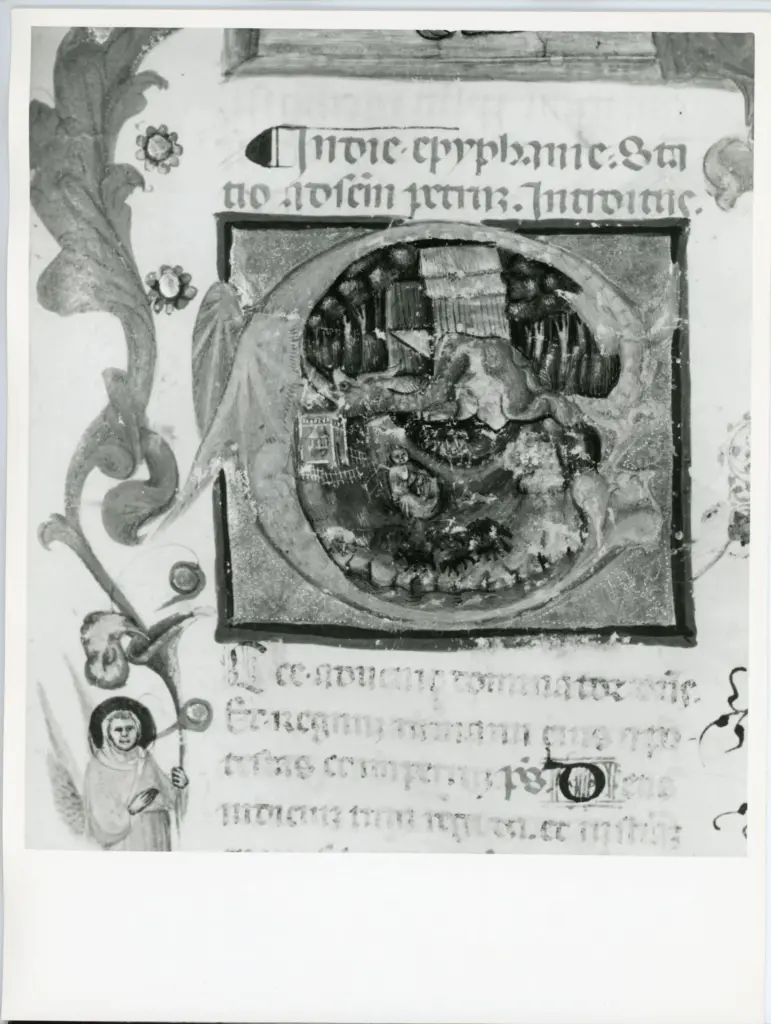 In die epyphanie. Sta
tio ad scm petrum. Introitus.
Ecce advenit dominator dns.
Et regnum in manu eius et po
testas et imperium. ps. Deus
iudicium tuum regi da. et iustitia